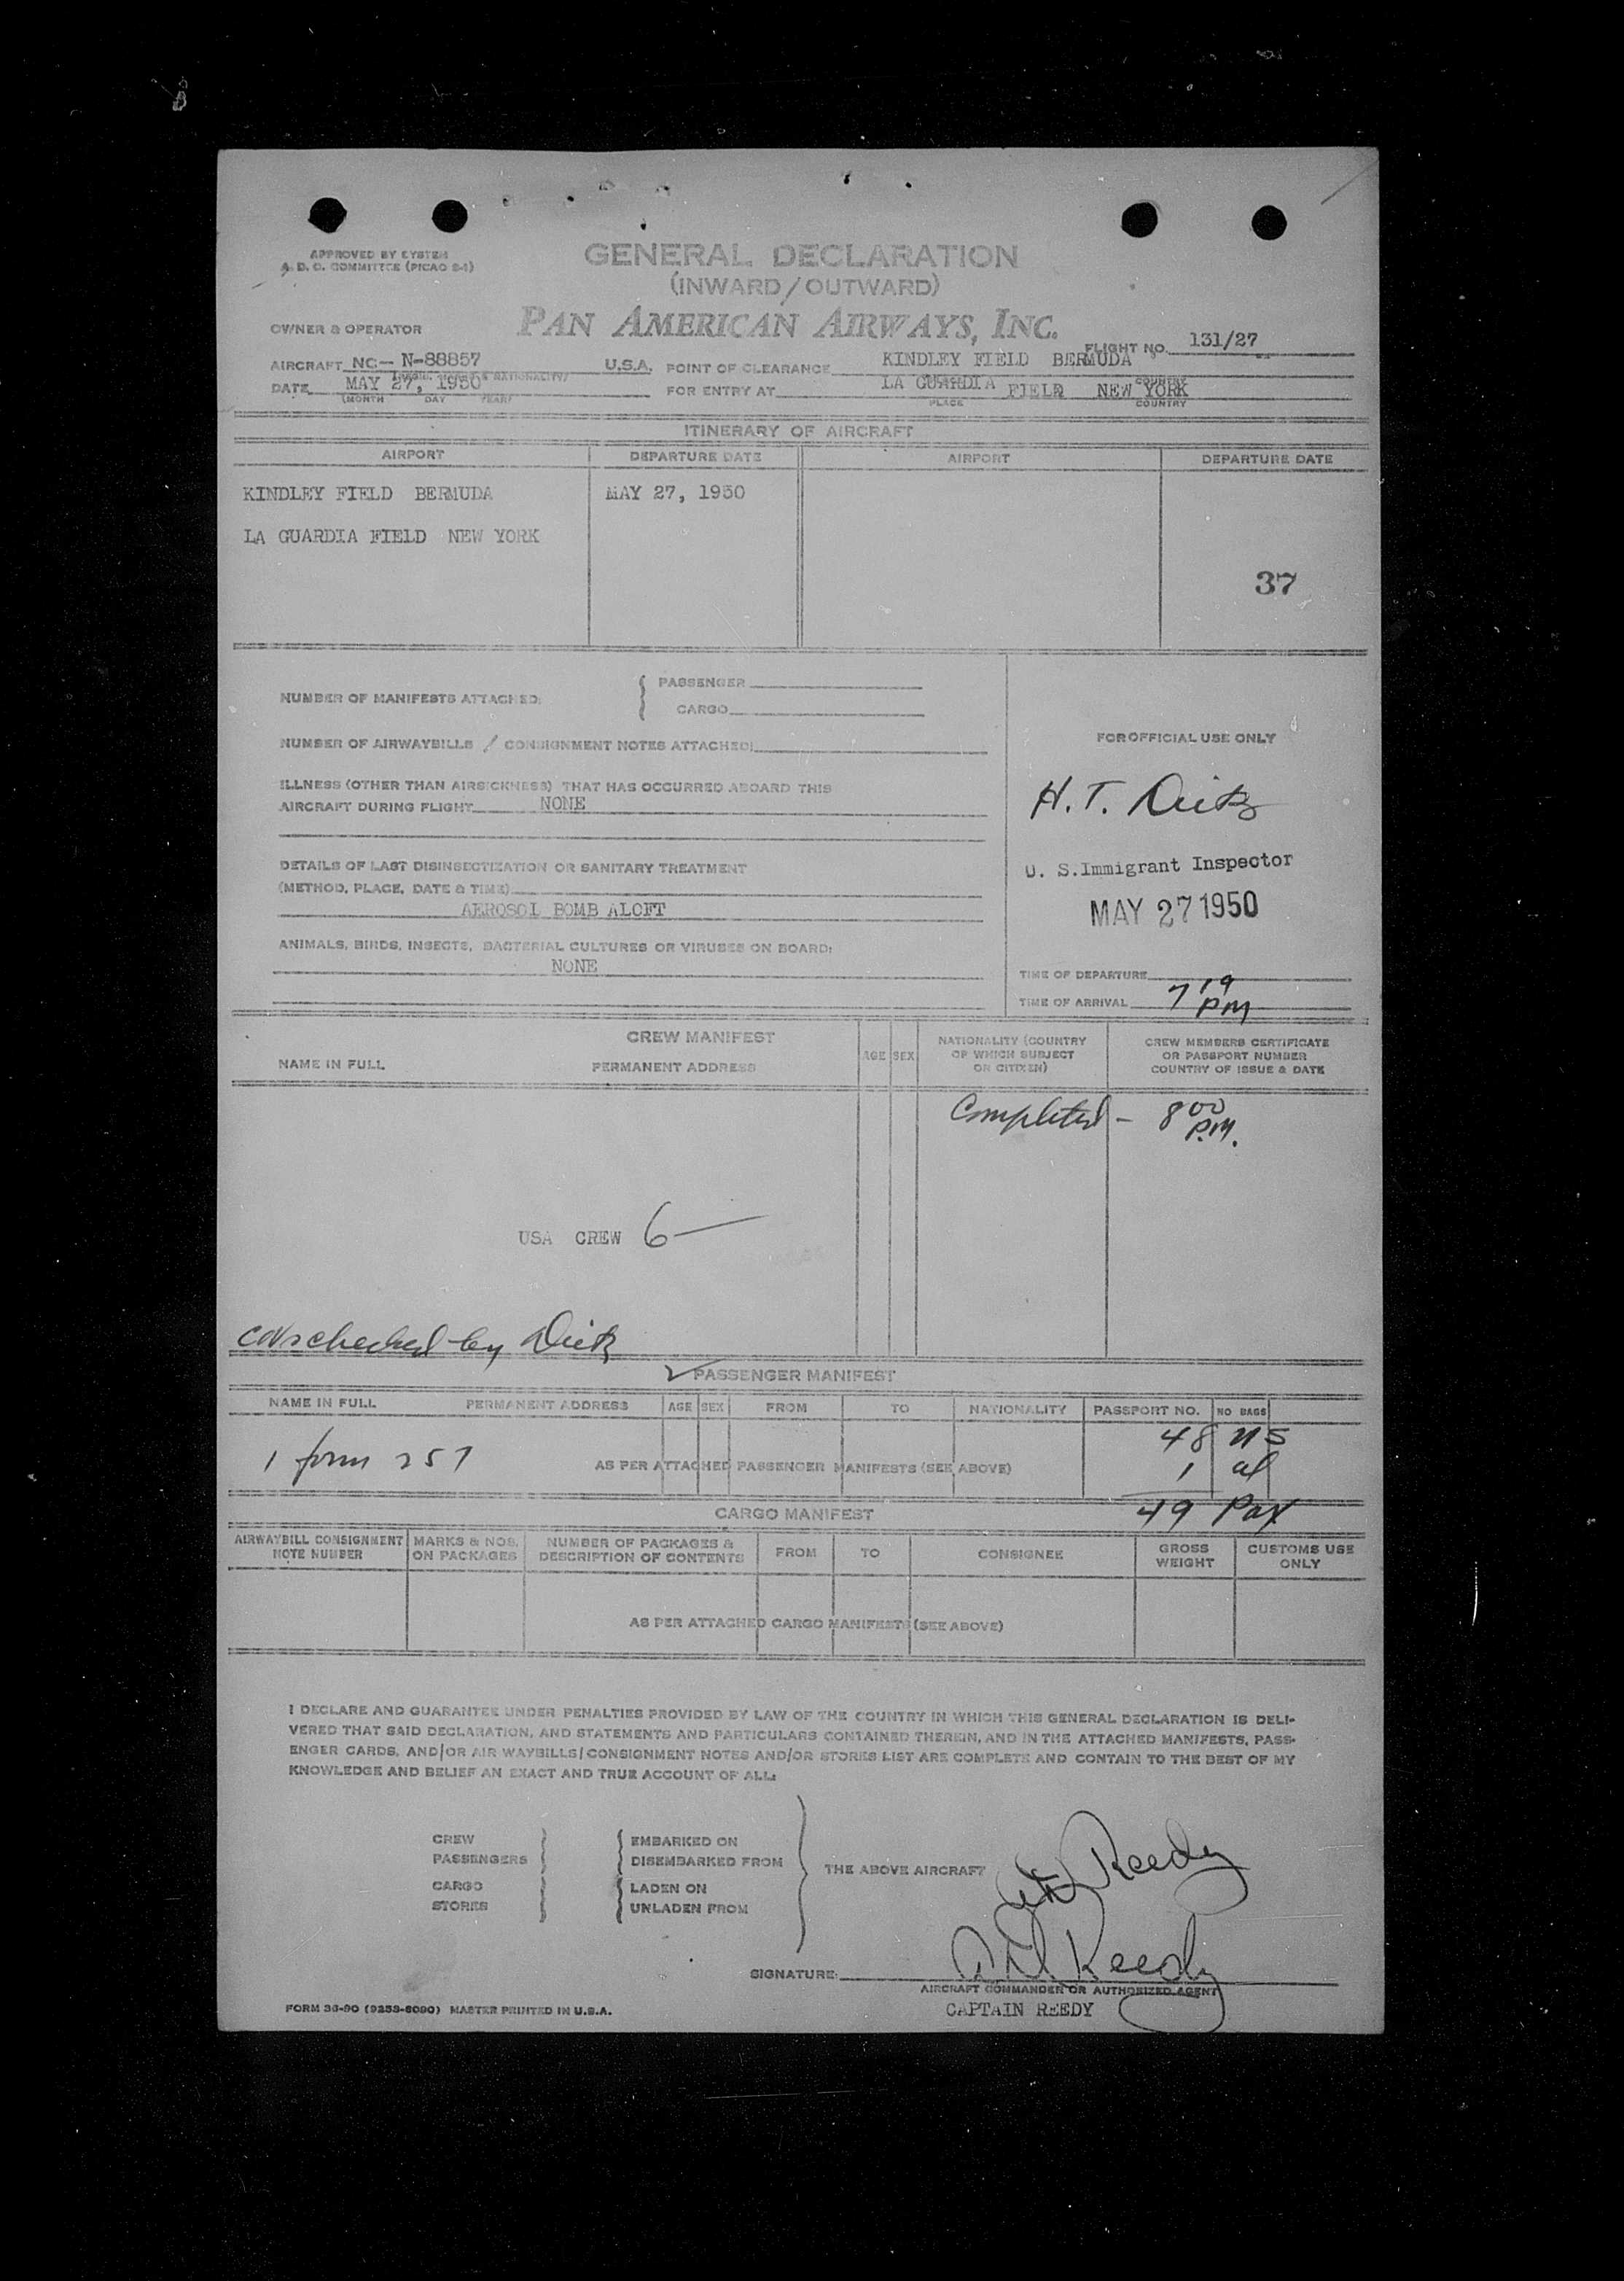 APPROVED BY SYSTEM
A. D. O. COMMITTEE (PICAO 2-1)
GENERAL DECLARATION
(INWARD/OUTWARD)
PAN AMERICAN AIRWAYS, INC.
OWNER & OPERATOR
FLIGHT NO. 131/27
AIRCRAFT NC- N-88857 U.S.A. POINT OF CLEARANCE KINDLEY FIELD BERMUDA
COUNTRY
DATE MAY 27, 1950 FOR ENTRY AT LA GUARDIA FIELD NEW YORK
(MONTH DAY YEAR) PLACE COUNTRY
ITINERARY OF AIRCRAFT
AIRPORT DEPARTURE DATE AIRPORT DEPARTURE DATE
KINDLEY FIELD BERMUDA MAY 27, 1950
LA GUARDIA FIELD NEW YORK
37
NUMBER OF MANIFESTS ATTACHED: PASSENGER
CARGO
NUMBER OF AIRWAYBILLS / CONSIGNMENT NOTES ATTACHED:
FOR OFFICIAL USE ONLY
ILLNESS (OTHER THAN AIRSICKNESS) THAT HAS OCCURRED ABOARD THIS
AIRCRAFT DURING FLIGHT NONE
H.T. Dietz
DETAILS OF LAST DISINSECTIZATION OR SANITARY TREATMENT
(METHOD, PLACE, DATE & TIME)
AEROSOL BOMB ALOFT
U. S. Immigrant Inspector
MAY 27 1950
ANIMALS, BIRDS, INSECTS, BACTERIAL CULTURES OR VIRUSES ON BOARD:
NONE
TIME OF DEPARTURE
TIME OF ARRIVAL 7 19 PM
CREW MANIFEST
NAME IN FULL PERMANENT ADDRESS AGE SEX NATIONALITY (COUNTRY OF WHICH SUBJECT OR CITIZEN) CREW MEMBERS CERTIFICATE OR PASSPORT NUMBER COUNTRY OF ISSUE & DATE
Completed - 8 00 P.M.
USA CREW 6
checked by Dietz
PASSENGER MANIFEST
NAME IN FULL PERMANENT ADDRESS AGE SEX FROM TO NATIONALITY PASSPORT NO. NO BAGS
48 US
1 form 257 AS PER ATTACHED PASSENGER MANIFESTS (SEE ABOVE) 1 al
49 Pax
CARGO MANIFEST
AIRWAYBILL CONSIGNMENT NOTE NUMBER MARKS & NOS. ON PACKAGES NUMBER OF PACKAGES & DESCRIPTION OF CONTENTS FROM TO CONSIGNEE GROSS WEIGHT CUSTOMS USE ONLY
AS PER ATTACHED CARGO MANIFESTS (SEE ABOVE)
I DECLARE AND GUARANTEE UNDER PENALTIES PROVIDED BY LAW OF THE COUNTRY IN WHICH THIS GENERAL DECLARATION IS DELI-
VERED THAT SAID DECLARATION, AND STATEMENTS AND PARTICULARS CONTAINED THEREIN, AND IN THE ATTACHED MANIFESTS, PASS-
ENGER CARDS, AND/OR AIR WAYBILLS/CONSIGNMENT NOTES AND/OR STORES LIST ARE COMPLETE AND CONTAIN TO THE BEST OF MY
KNOWLEDGE AND BELIEF AN EXACT AND TRUE ACCOUNT OF ALL:
CREW EMBARKED ON
PASSENGERS DISEMBARKED FROM
THE ABOVE AIRCRAFT Reedy
CARGO LADEN ON
STORES UNLADEN FROM
SIGNATURE: Reedy
AIRCRAFT COMMANDER OR AUTHORIZED AGENT
CAPTAIN REEDY
FORM 36-90 (9253-6090) MASTER PRINTED IN U.S.A.